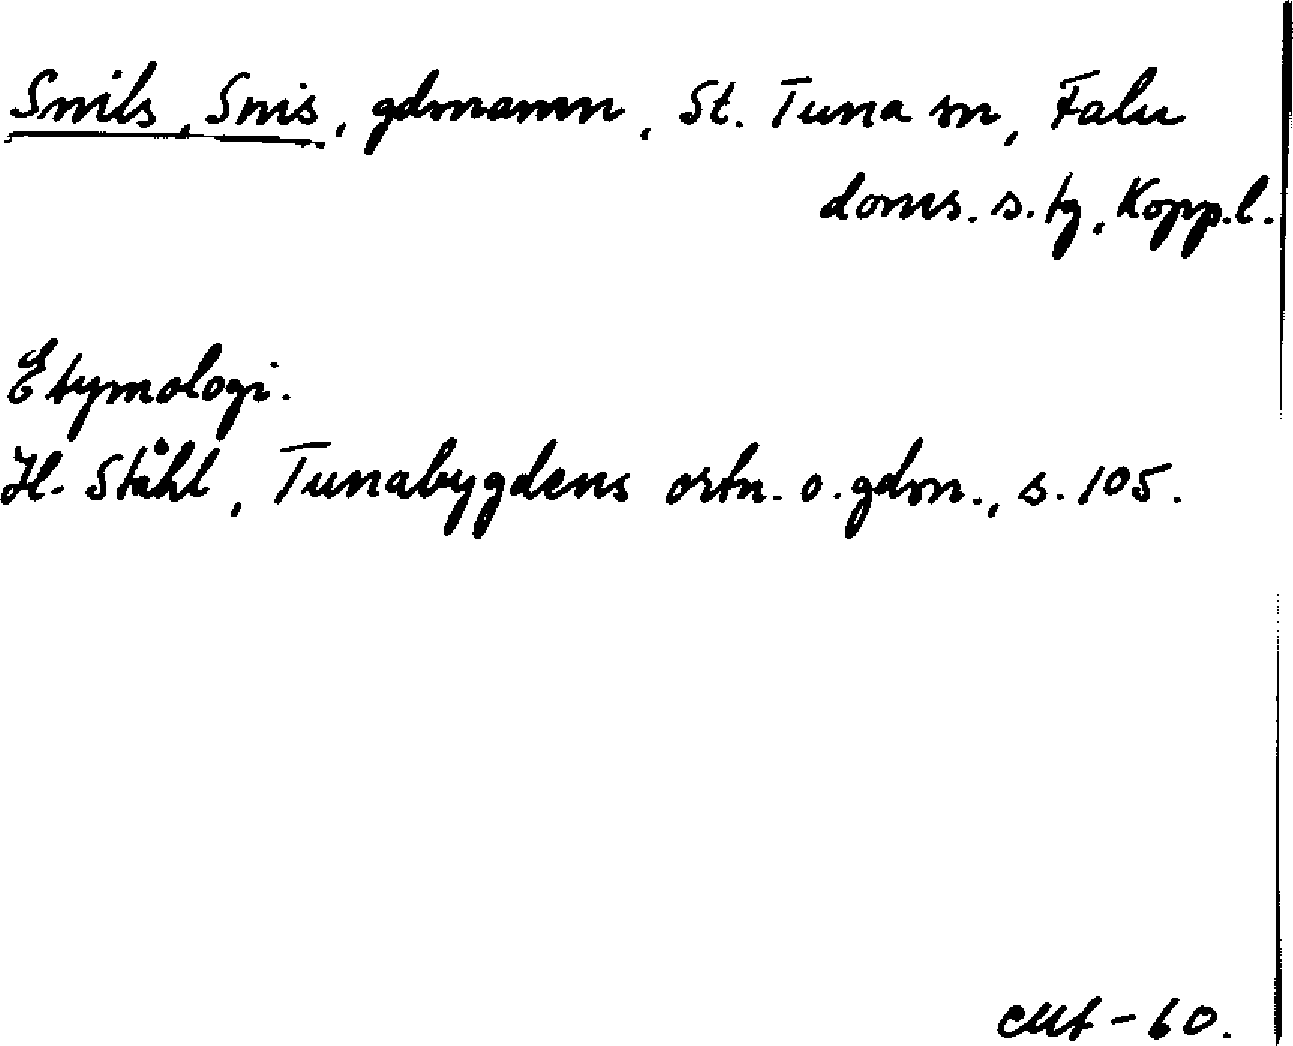 Snils, Snis, gdmamn, St. Tuna sn, Falu
doms. s. tg, Kopp.l.
Etymologi.
H. Ståhl, Tunabygdens ortn. o. gdsn., s. 105.
-60.